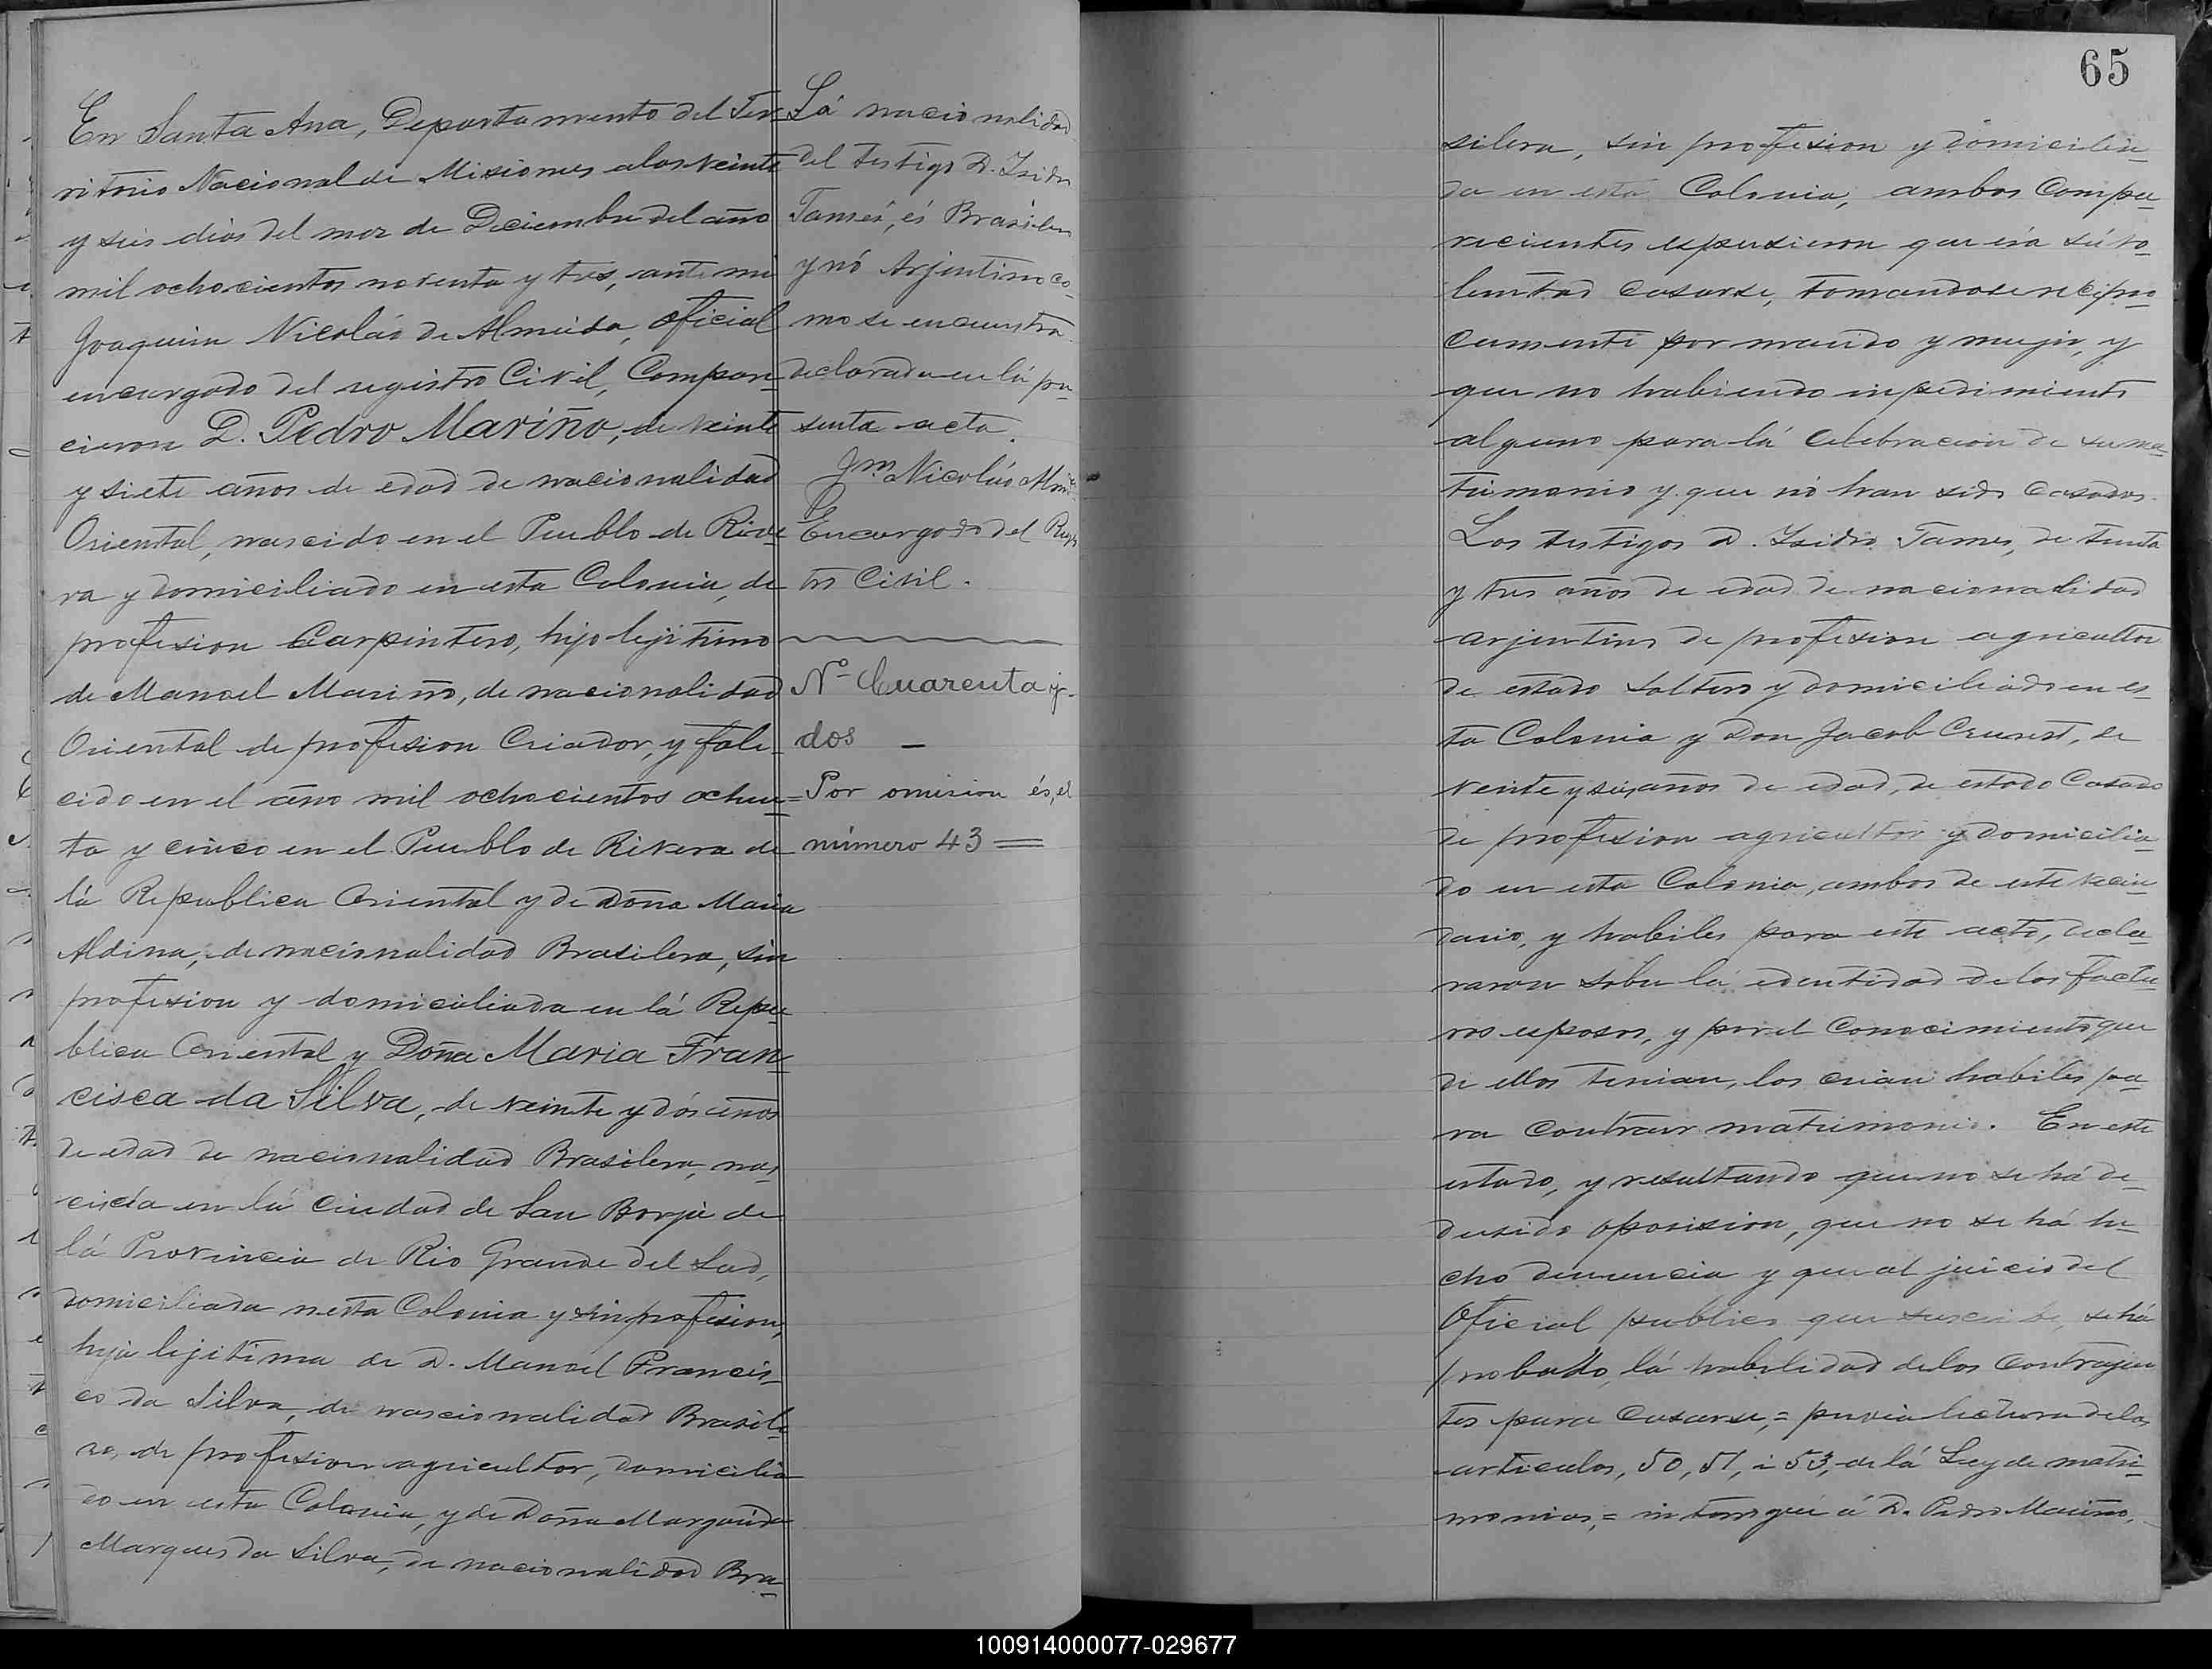 En Santa Ana, Departamento del Ter-
ritorio Nacional de Misiones a los veinte
y seis dias del mez de Deciembre del año
mil ochocientos noventa y tres, ante mi
Joaquim Nicoláo de Almeida, Oficial
encargado del registro Civil, Compare-
cieron D. Pedro Mariño, de veinte
y siete años de edad de nacionalidad
Oriental, nascido en el Pueblo de Rive-
ra y domiciliado en esta Colonia, de
profesion Carpintero, hijo lejitimo
de Manoel Mariño, de nacionalidad
Oriental de profesion Criador, y fale-
cido en el ano mil ochocientos ochen=
ta y cinco en el Pueblo de Rivera de
lá Republica Oriental y de Doña Maria
Aldina, de nacionalidad Brasilera, sin
profesion y domiciliada en lá Repu-
blica Oriental y Doña Maria Fran-
cisca da Silva, de veinte y dós años
de edad de nacionalidad Brasilera, nas-
cida en lá Ciudad de San Borja de
lá Provincia de Rio Grande del Sud,
domiciliada nesta Colonia y sin profesion,
hija lejitima de D. Manoel Francis-
co da Silva, de nascionalidad Brasile-
ro, de profesion agricultor, domicilia-
do en esta Colonia, y de Doña Margarida
Marques da Silva, de nacionalidad Bra-
Lá nacionalidad
del testigo D. Isidro
Tames, és Brasilero
y nó Arjentino co-
mo se encuentra
declarado en lá pre-
sente acta.
Jm. Nicoláo
Encargado del Regis-
tro Civil.
No Cuarenta y
dos —
Por omision és, el
número 43 =
65
silera, sin profesion y domicilia-
da en esta Colonia; ambos Compa-
recientes espusieron que éra sú vo-
luntad Casarse, tomandose recipro-
camente por marido y mujer, y
que no habiendo inpedimiento
alguno para lá Celebracion de su ma-
trimonio y que nó han sido Casados.
Los testigos D. Isidro Tames, de trenta
y tres años de edad de nacionalidad
arjentino de profesion agricultor
de estado soltero y domiciliado en es-
ta Colonia y Don Jacob de
veinte y seis años de edad, de estado Casado
de profesion agricultor y domicilia-
do en esta Colonia, ambos de este vecin-
dario, y habiles para este acto, decla-
raron sobre lá edentidad de los factu-
ros esposos, y por el Conocimiento que
de ellos tenian, los crian habiles pa-
ra Contraer matrimonio. En este
estado, y resultando que no se há de-
dusido oposision, que no se há he-
cho denuncia y que al juicio del
Oficial publico que suscribe, se há
probado, lá habilidad de los Contrajen-
tes para Casarse, = previa lectura de los
articulos, 50, 51, i 53, de lá Ley de matri-
monios, = interogué á D. Pedro Mariño,
100914000077-029677